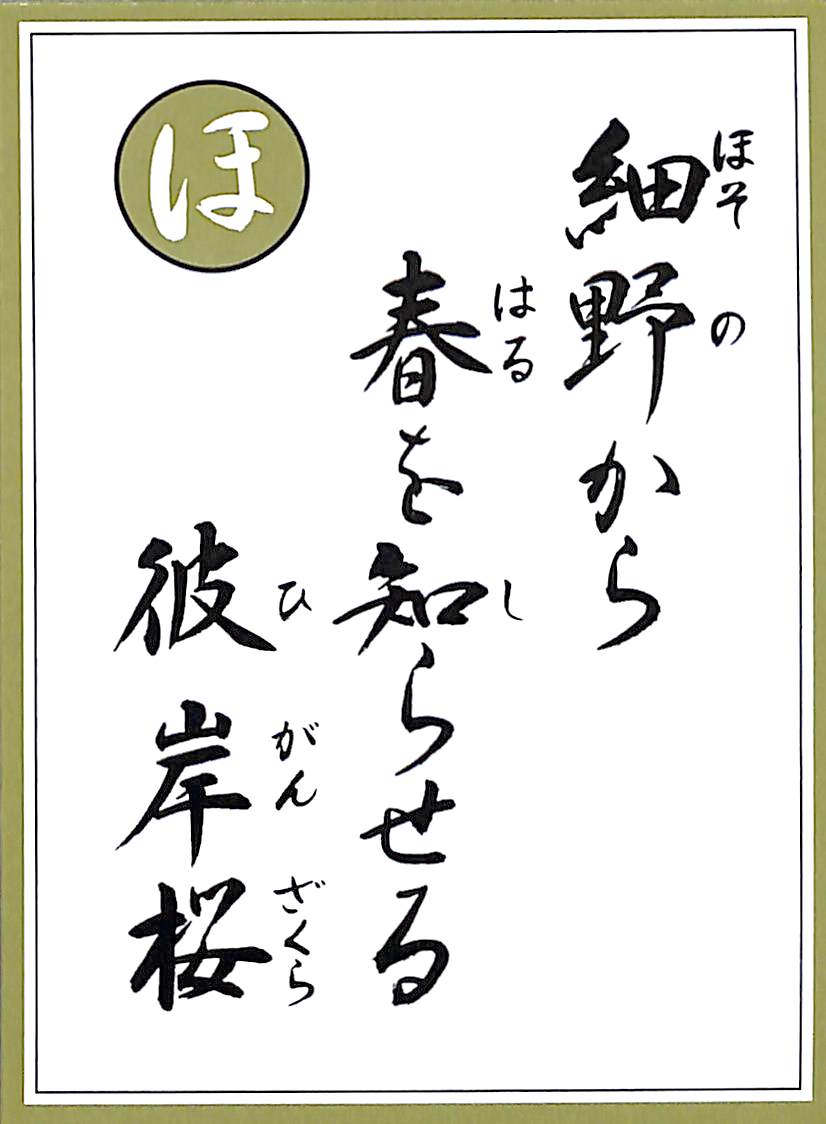 ほ
細野から
ほその
春を知らせる
はる
し
彼岸桜
ひがんざくら